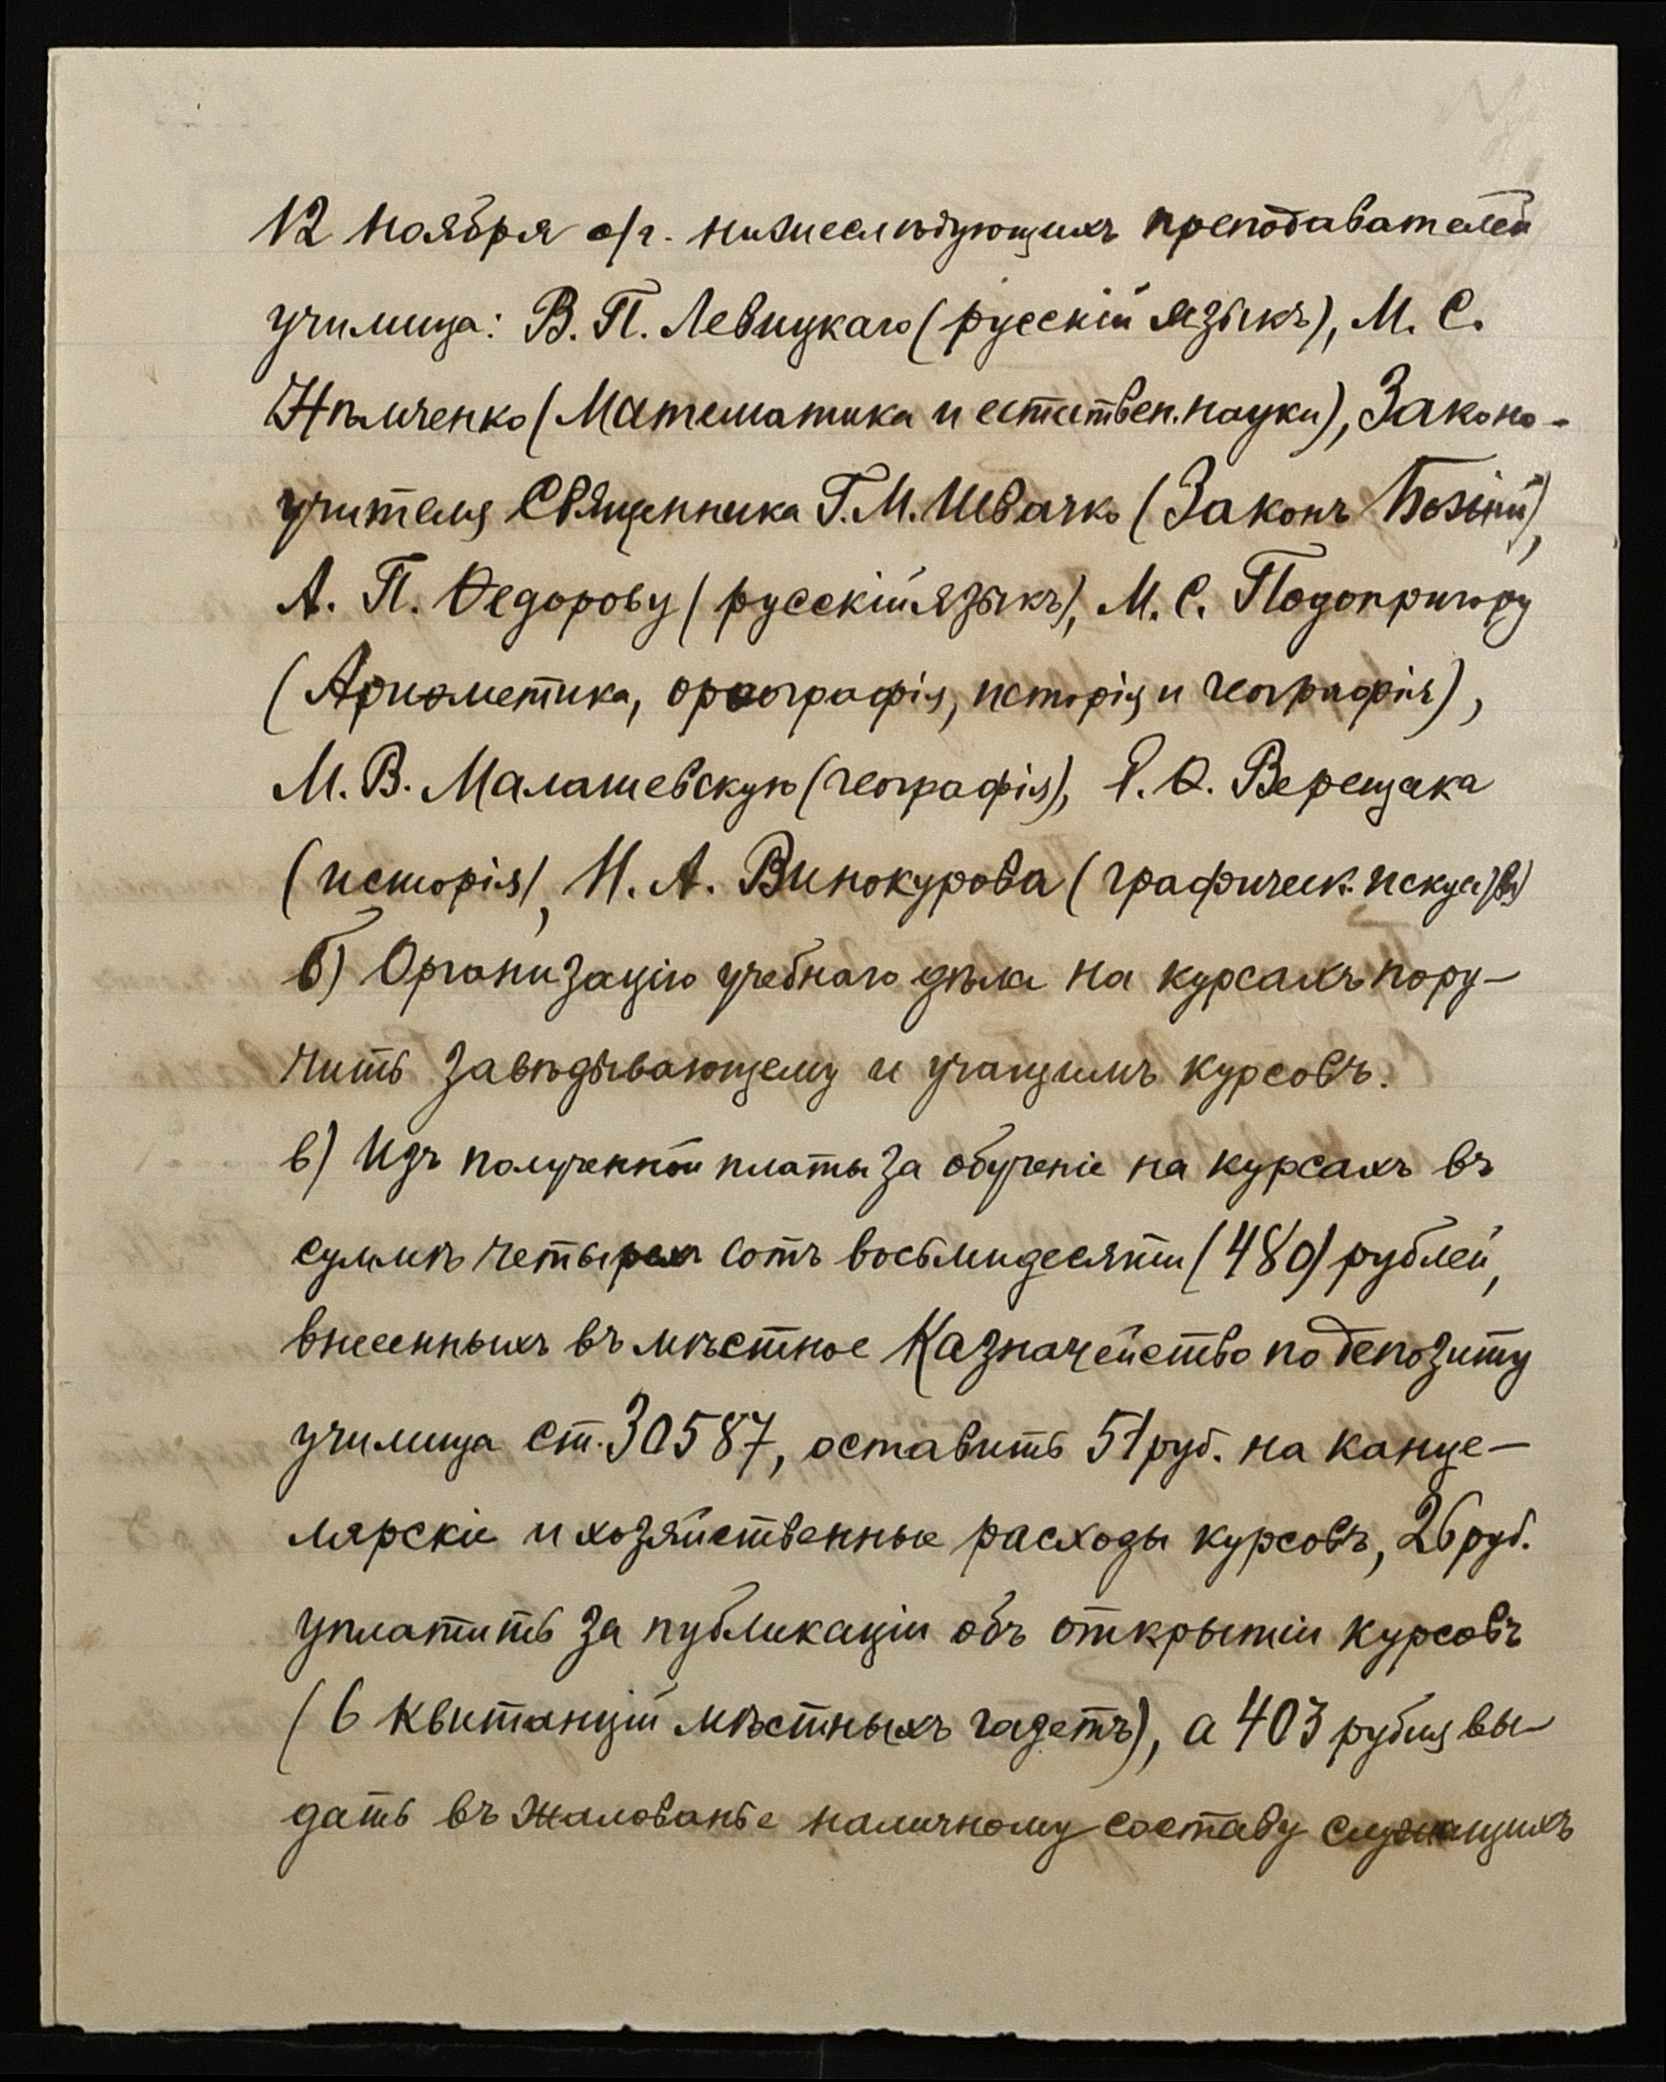 12 ноября с/г. нижеслѣдующихъ преподавателей
училища: В. П. Левицкаго (русскій языкъ), М. С.
Нѣмченко (Математика и естествен. науки), Законо-
учителя Священника Г. М. Швачко (Законъ Божій),
А. П. Ѳедорову (русскій языкъ), М. С. Подопригору
(Ариѳметика, орѳографія, исторія и географія),
М. В. Малашевскую (географія), Я. Ѳ. Верещака
(исторія), И. А. Винокурова (графическ. искусства)
б) Организацію учебнаго дѣла на курсахъ пору-
чить завѣдывающему и учащимъ курсовъ.
в) Изъ полученной платы за обученіе на курсахъ въ
суммѣ четырехъ сотъ восьмидесяти (480) рублей,
внесенныхъ въ мѣстное Казначейство по депозиту
училища ст. 30587, оставить 51 руб. на канце-
лярскіе и хозяйственные расходы курсовъ, 26 руб.
уплатить за публикаціи объ открытіи курсовъ
(6 квитанцій мѣстныхъ газетъ), а 403 рубля вы-
дать въ жалованье наличному составу служащихъ